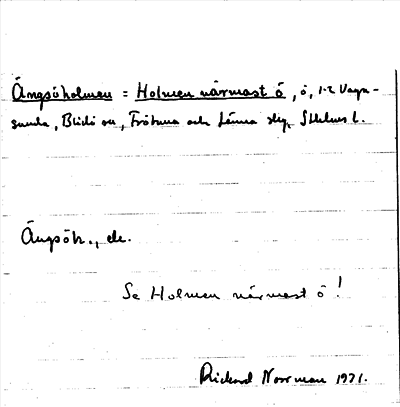 Ängsöholmen = Holmen närmast ö, ö, 1-2 Vagn-
sunda, Blidö sn, Frötuna och Länna slg, Sthlms l.
Ängsöh., de.
Se Holmen närmast ö!
Rickard Norrman 1971.